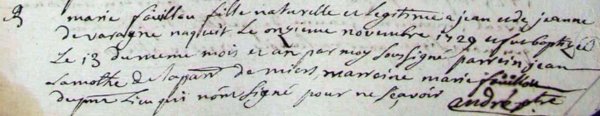 marie fouillou fille naturelle et legitime a jean et de jeanne
de vavagne naquit le onzieme novembre 1729 et fut baptizée
Le 13 du meme mois et an par moy soussigné parrein jean
Lamothe de de miers marreine marie fouillou
du lieu qui n'ont signé pour ne sçavoir
andré ptre